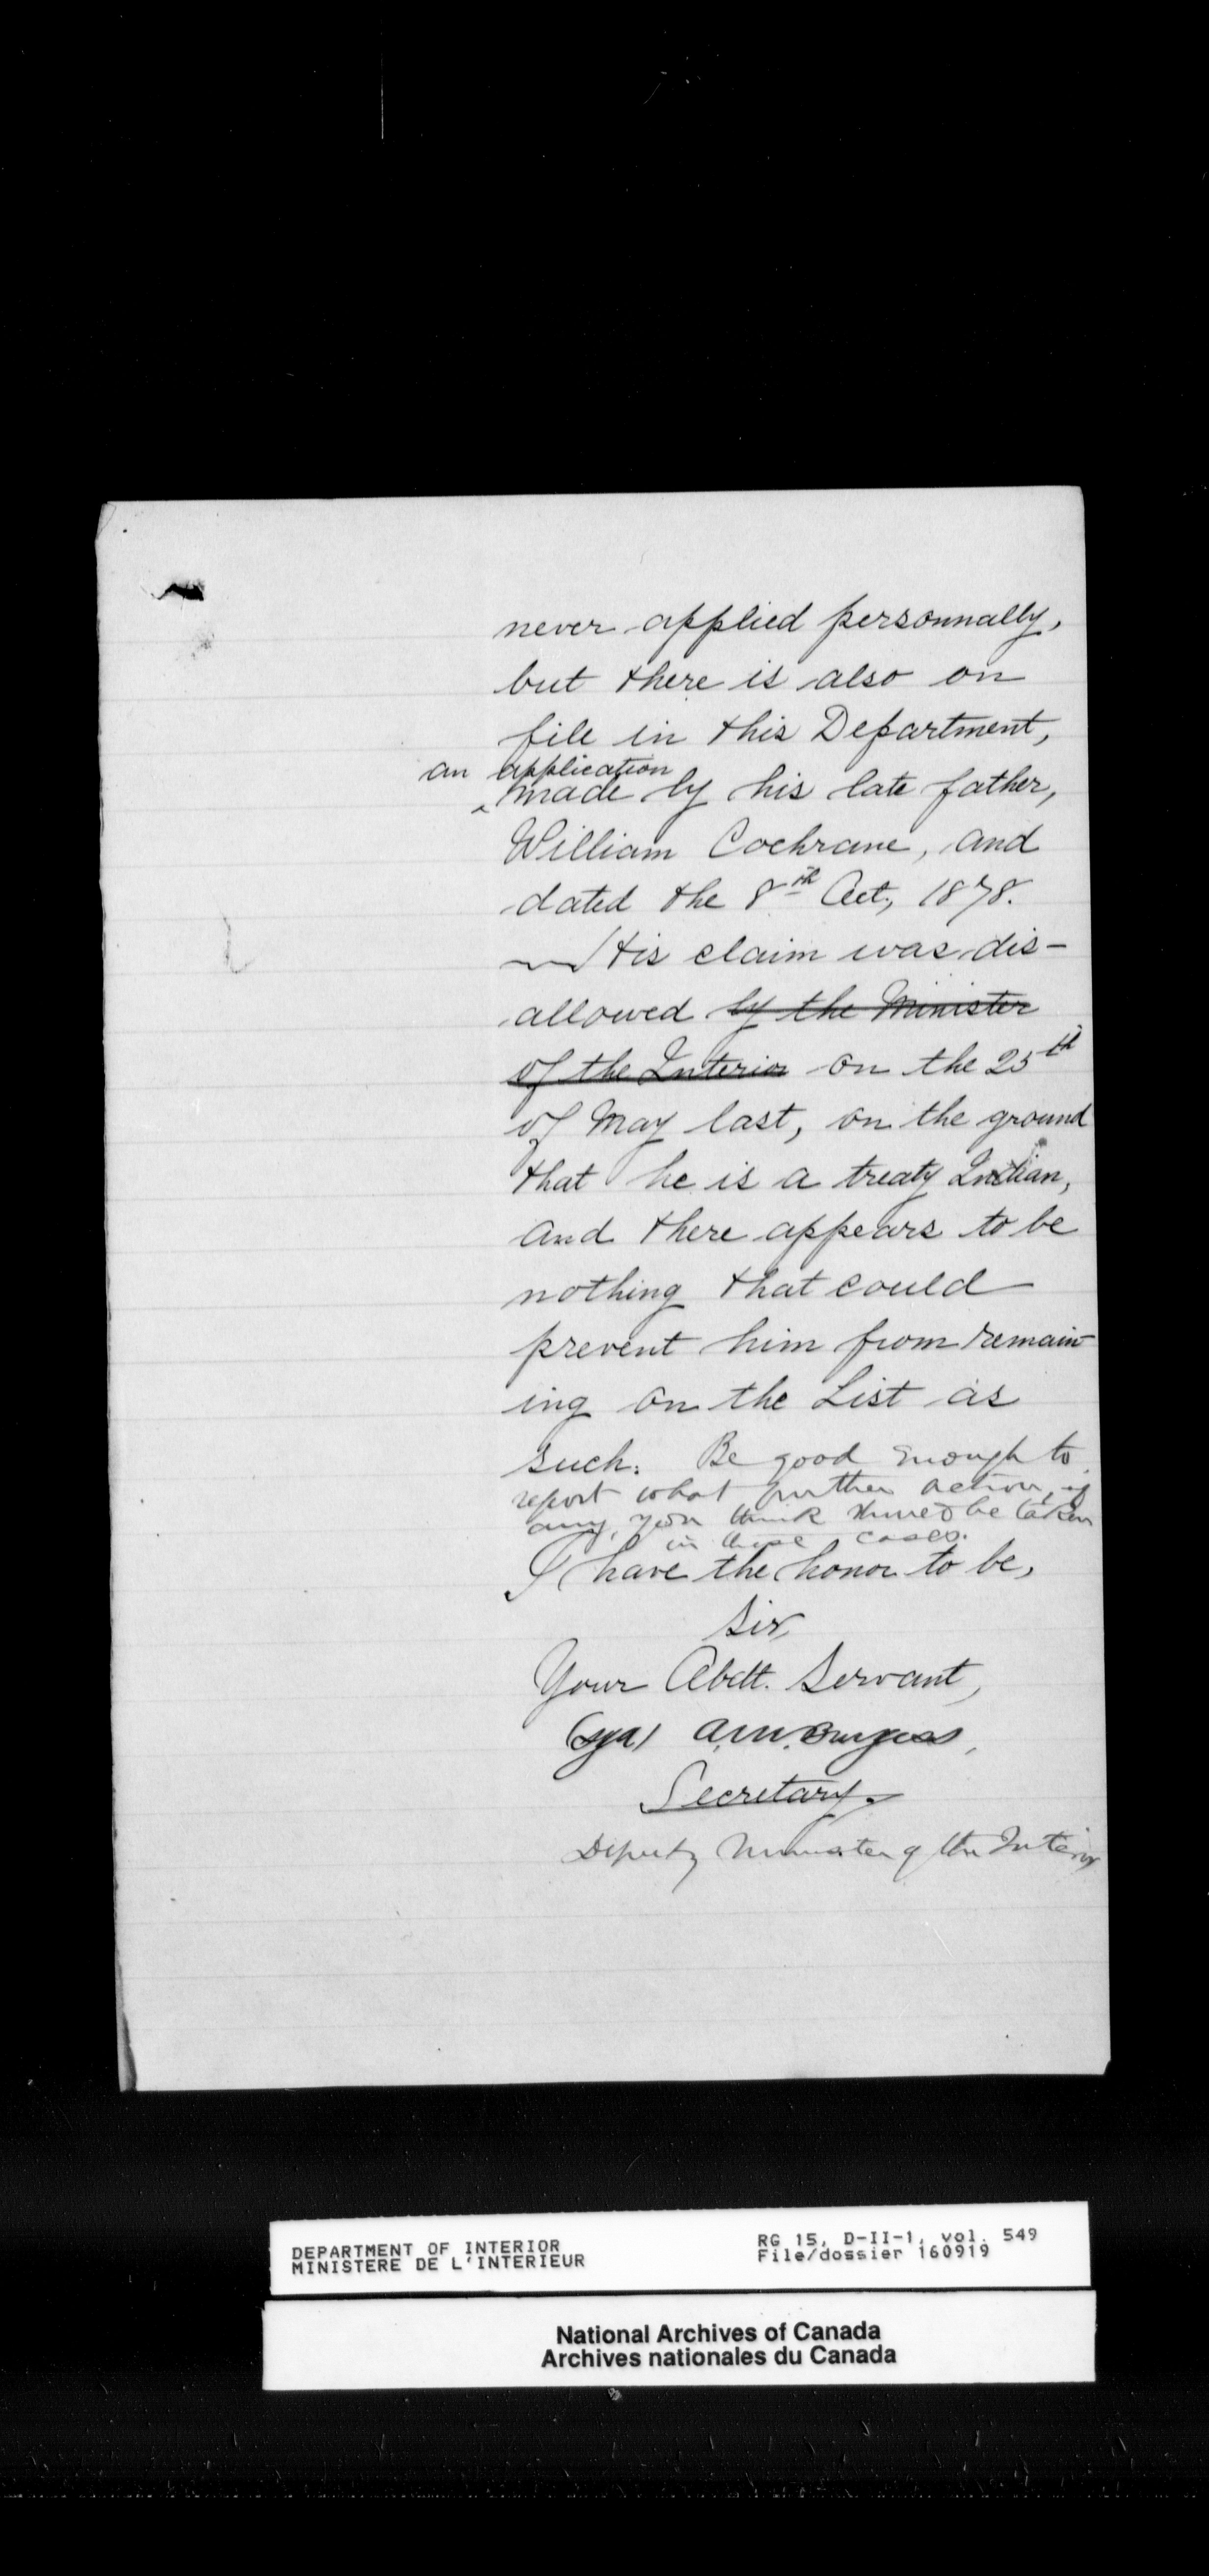 never applied personnally,
but there is also on
file in this Department,
an application
made by his late father,
William Cochrane, and
dated the 8th Oct, 1878.
His claim was dis-
allowed by the Minister
of the Interior on the 25th
of May last, on the ground
that he is a treaty Indian,
and there appears to be
nothing that could
prevent him from remain
ing on the List as
such. Be good enough to
report what further action, if
any, you think should be taken
in these cases.
I have the honor to be,
Sir,
Your Obdt. Servant,
(sgd) A.M. Burgess,
Secretary.
Deputy Minister of the Interior
DEPARTMENT OF INTERIOR
MINISTERE DE L'INTERIEUR
RG 15, D-II-1, vol. 549
File/dossier 160919
National Archives of Canada
Archives nationales du Canada